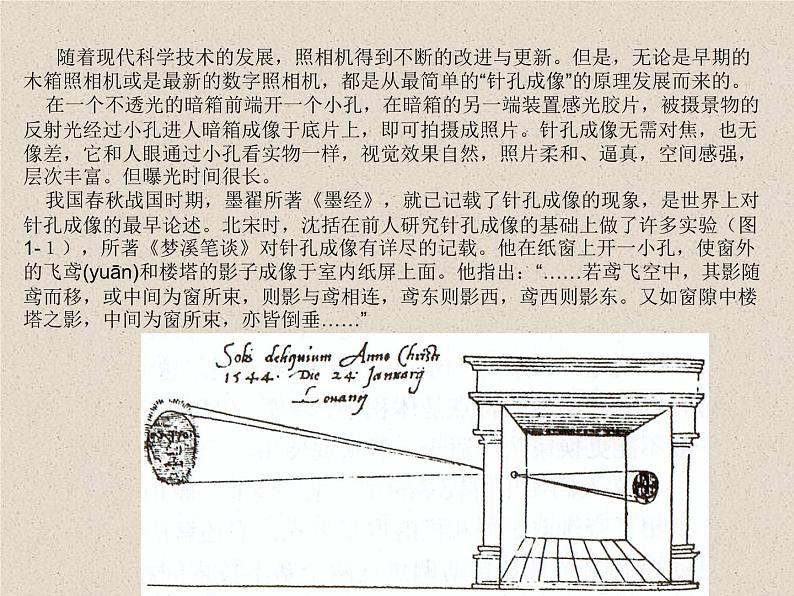 随着现代科学技术的发展，照相机得到不断的改进与更新。但是，无论是早期的
木箱照相机或是最新的数字照相机，都是从最简单的“针孔成像”的原理发展而来的。
在一个不透光的暗箱前端开一个小孔，在暗箱的另一端装置感光胶片，被摄景物的
反射光经过小孔进人暗箱成像于底片上，即可拍摄成照片。针孔成像无需对焦，也无
像差，它和人眼通过小孔看实物一样，视觉效果自然，照片柔和、逼真，空间感强，
层次丰富。但曝光时间很长。
我国春秋战国时期，墨翟所著《墨经》，就已记载了针孔成像的现象，是世界上对
针孔成像的最早论述。北宋时，沈括在前人研究针孔成像的基础上做了许多实验（图
1-１），所著《梦溪笔谈》对针孔成像有详尽的记载。他在纸窗上开一小孔，使窗外
的飞鸢(yuān)和楼塔的影子成像于室内纸屏上面。他指出：“……若鸢飞空中，其影随
鸢而移，或中间为窗所束，则影与鸢相连，鸢东则影西，鸢西则影东。又如窗隙中楼
塔之影，中间为窗所束，亦皆倒垂……”
Solis deliquium Anno Christi
1544. Die 24. Januarij
Louanij